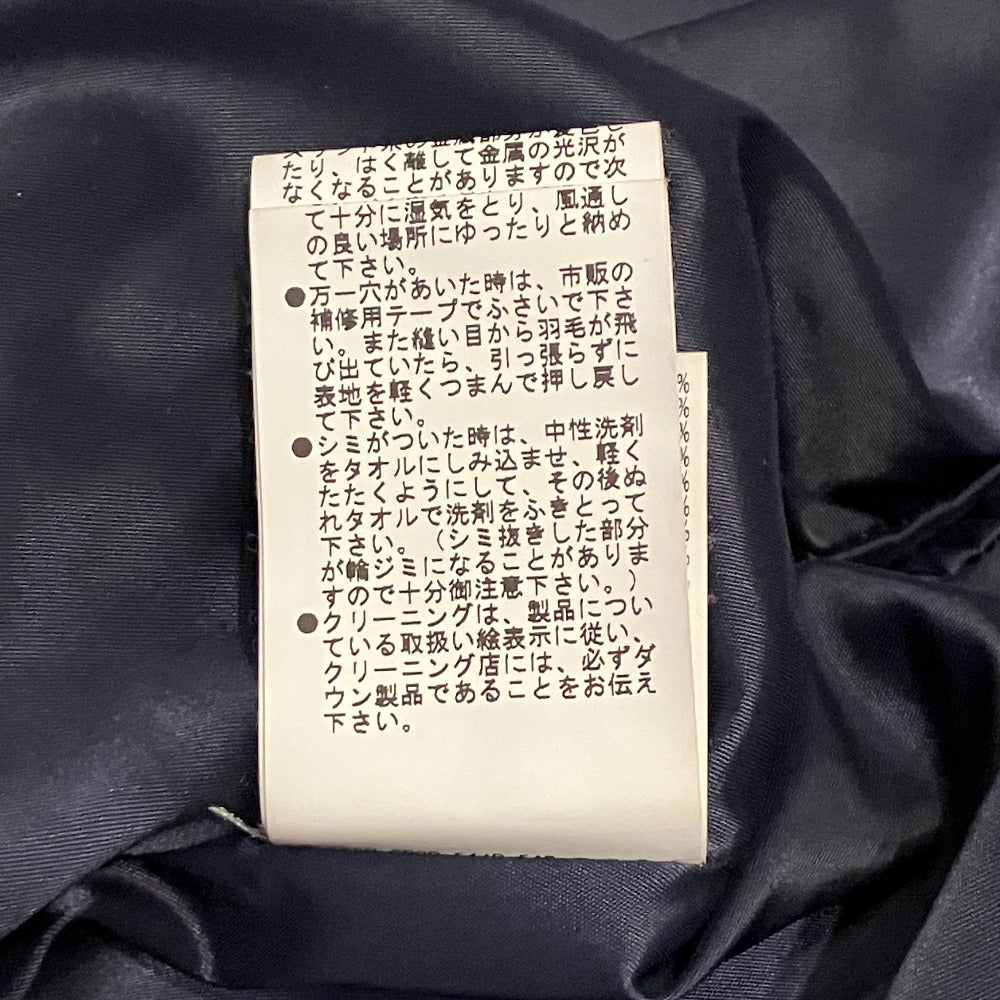 たり、はく離して金属の光沢が
なくなることがありますので次
て十分に湿気をとり、風通し
の良い場所にゆったりと納め
て下さい。
●万一穴があいた時は、市販の
補修用テープでふさいで下さ
い。また縫い目から羽毛が飛
び出ていたら、引っ張らずに
表地を軽くつまんで押し戻し
て下さい。
●シミがついた時は、中性洗剤
をタオルにしみ込ませ、軽く
たたくようにして、その後ぬ
れタオルで洗剤をふきとって
下さい。（シミ抜きした部分
が輪ジミになることがありま
すので十分御注意下さい。）
●クリーニングは、製品につい
ている取扱い絵表示に従い、
クリーニング店には、必ずダ
ウン製品であることをお伝え
下さい。
%
%
%
%
%